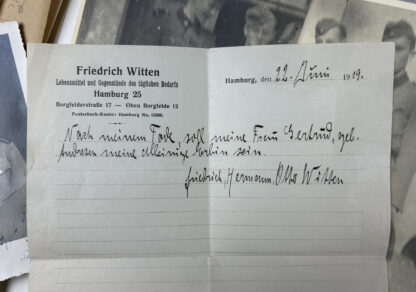 Friedrich Witten
Lebensmittel und Gegenstände des täglichen Bedarfs
Hamburg 25
Borgfelderstraße 17 — Oben Borgfelde 12
Postscheck-Konto: Hamburg No.
Hamburg, den 22. Juni 1919.
Nach meinem Tode, soll meine Frau Gertrud, geb.
Andresen meine alleinige Erbin sein.
Friedrich, Hermann, Otto Witten